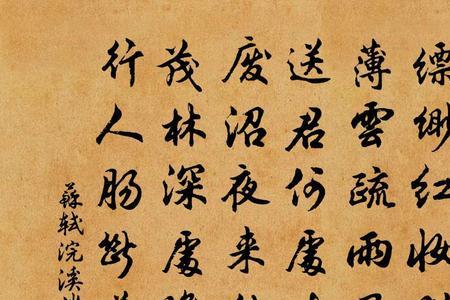 缥缈红妆
薄雲疏雨
送君何處
废沼夜来
茂林深處
行人肠断
蘇軾浣溪